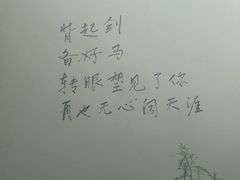 背起剑
备好马
转眼望见了你
再也无心闯天涯